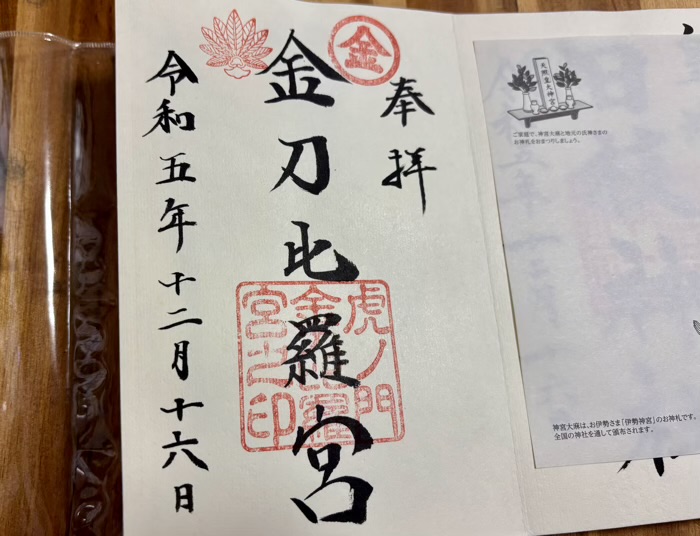 天照皇大神宮
ご家庭で、神宮大麻と地元の氏神さまの
お神札をおまつりしましょう。
神宮大麻は、お伊勢さま「伊勢神宮」のお神札です。
全国の神社を通して頒布されます。
奉拝
金
金刀比羅宮
虎ノ門
金
宮之印
令和五年十二月十六日